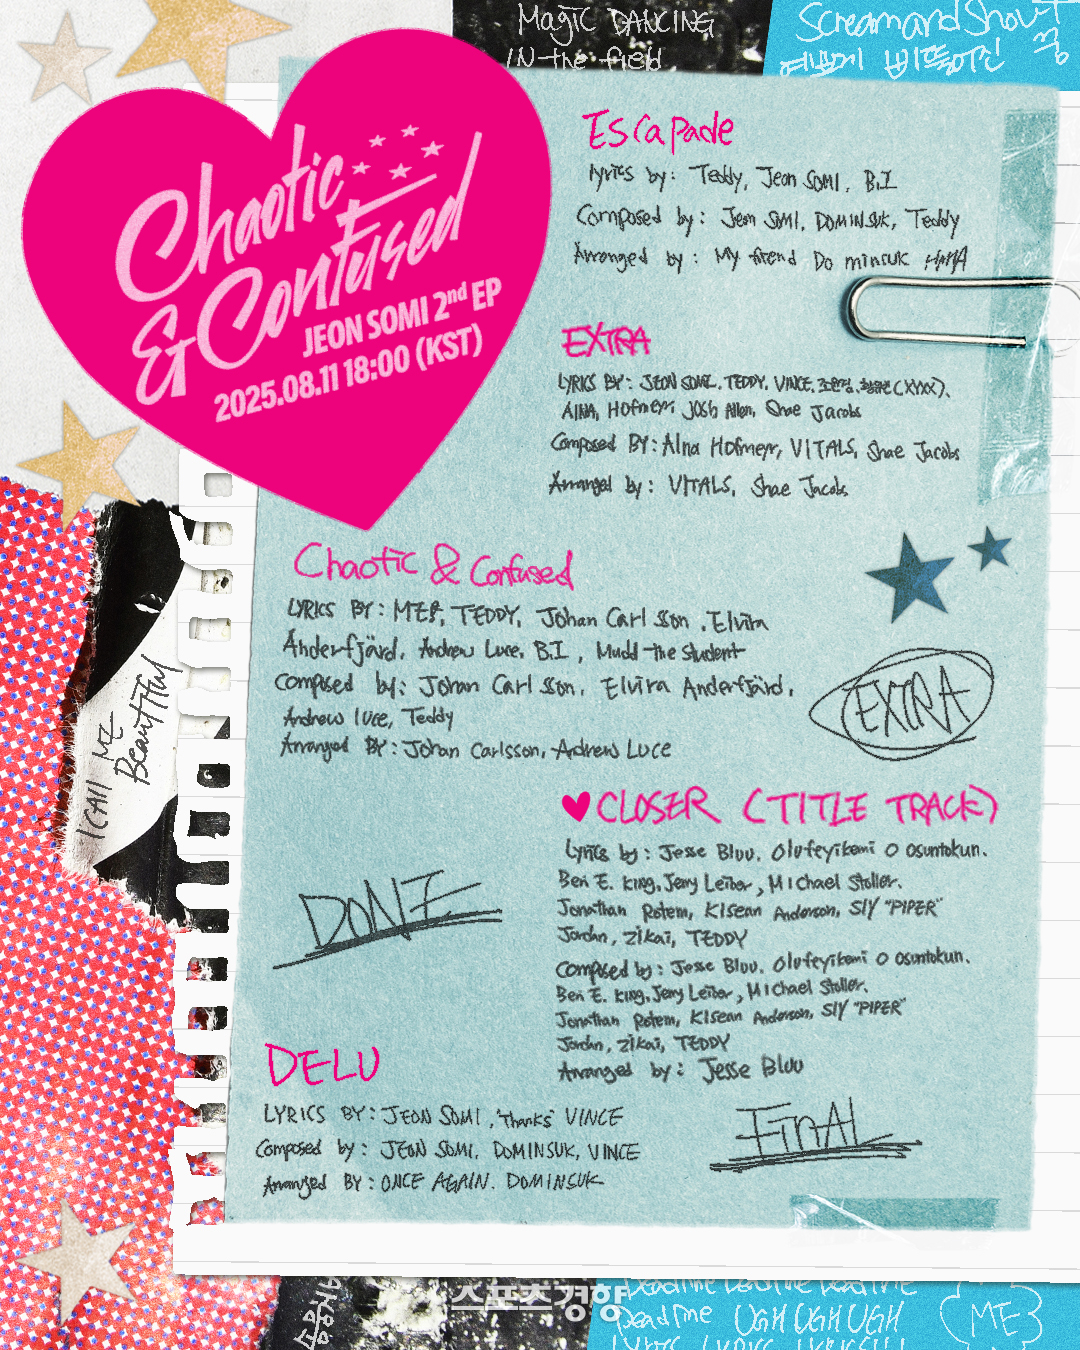 Magic DANCING
IN the field
Scream and Shout
Chaotic
& Confused
JEON SOMI 2nd EP
2025.08.11 18:00 (KST)
Escapade
lyrics by: Teddy, Jeon SOMI, B.I
Composed by: Jeon SOMI, DOMINSUK, Teddy
Arranged by: My friend Do minsuk HAHA
EXTRA
LYRICS BY: JEON SOMI, TEDDY, VINCE, (XYXX),
AINA, Hofmeyr, Josh Allen, Shae Jacobs
Composed BY: AIna Hofmeyr, VITALS, Shae Jacobs
Arranged by: VITALS, Shae Jacobs
Chaotic & Confused
LYRICS BY: ME!, TEDDY, Johan Carlsson, Elvira
Anderfjärd, Andrew Luce, B.I, Mudd the student
Composed by: Johan Carlsson, Elvira Anderfjärd,
Andrew luce, Teddy
Arranged BY: Johan Carlsson, Andrew Luce
EXTRA
I CAll ME
Beautiful
♥ CLOSER (TITLE TRACK)
Lyrics by: Jesse Bluu, Olufeyikemi O Osuntokun,
Ben E. King, Jerry Leiber, Michael Stoller,
Jonathan Rotem, Kisean Anderson, Sly "PIPER"
Jordan, Zikai, TEDDY
Composed by: Jesse Bluu, Olufeyikemi O Osuntokun,
Ben E. King, Jerry Leiber, Michael Stoller,
Jonathan Rotem, Kisean Anderson, Sly "PIPER"
Jordan, Zikai, TEDDY
Arranged by: Jesse Bluu
DONE
DELU
LYRICS BY: JEON SOMI, "Thanks" VINCE
Composed by: JEON SOMI, DOMINSUK, VINCE
Arranged BY: ONCE AGAIN. DOMINSUK
FinAl
스포츠경향
Deadline UGH UGH UGH
ME